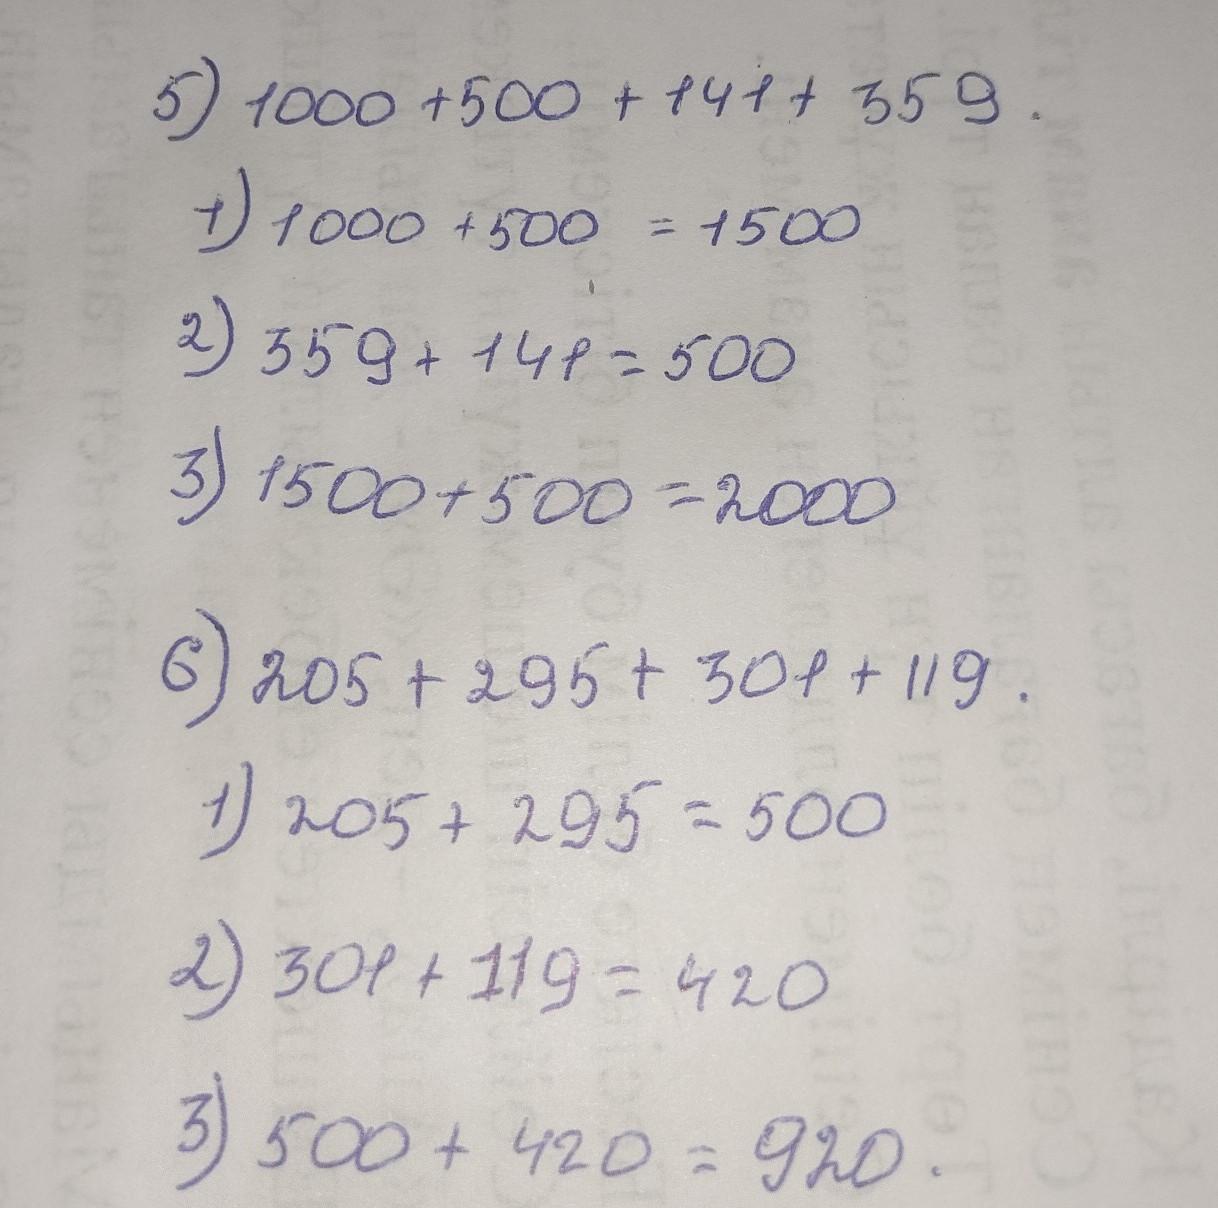 5) 1000 + 500 + 141 + 359.
1) 1000 + 500 = 1500
2) 359 + 141 = 500
3) 1500 + 500 = 2000
6) 205 + 295 + 301 + 119.
1) 205 + 295 = 500
2) 301 + 119 = 420
3) 500 + 420 = 920.